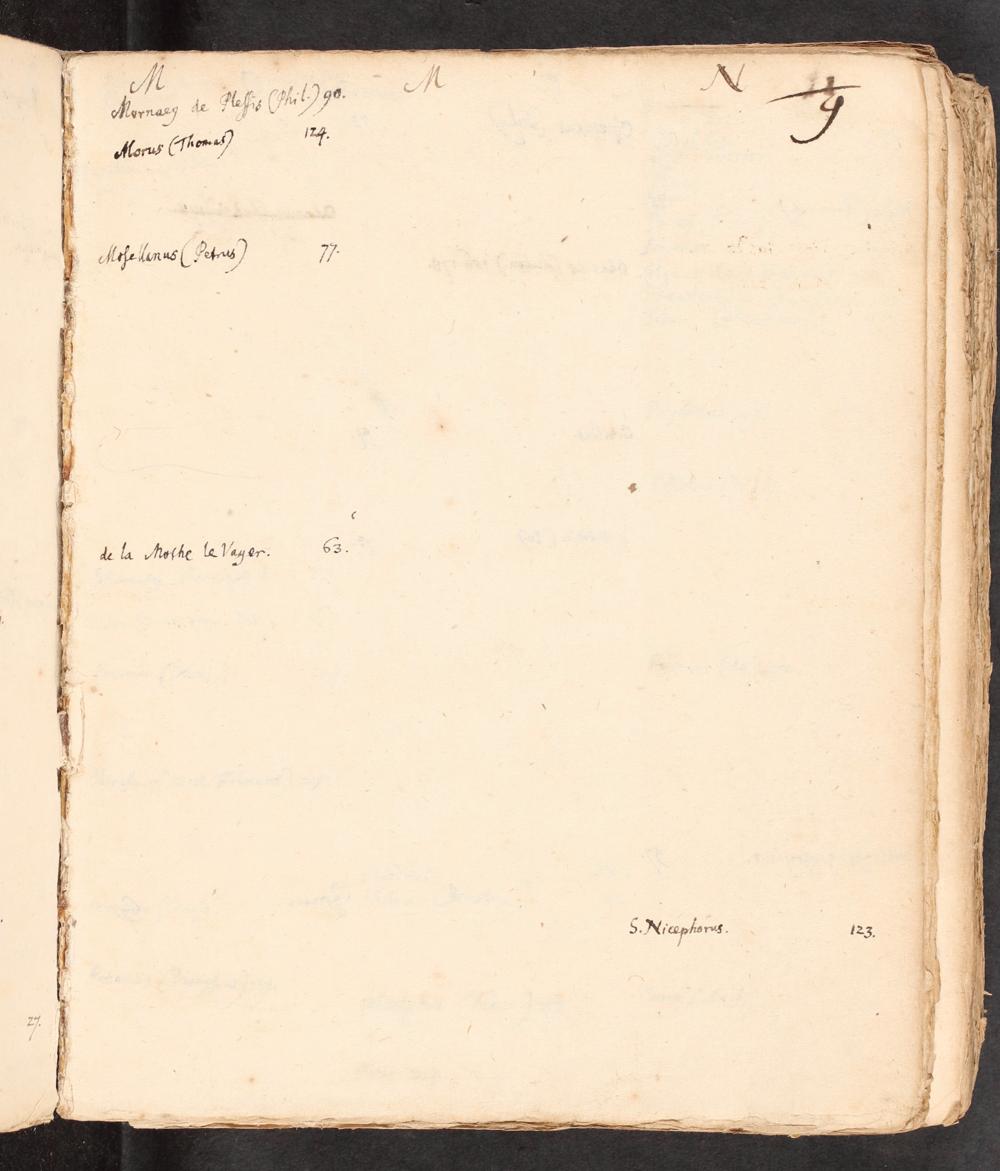 M M N 9
Mornaey de Plessis (Phil.) 90.
Morus (Thomas) 124.
Mosellanus (Petrus) 77.
de la Mothe le Vayer. 63.
S. Nicephorus. 123.
27.